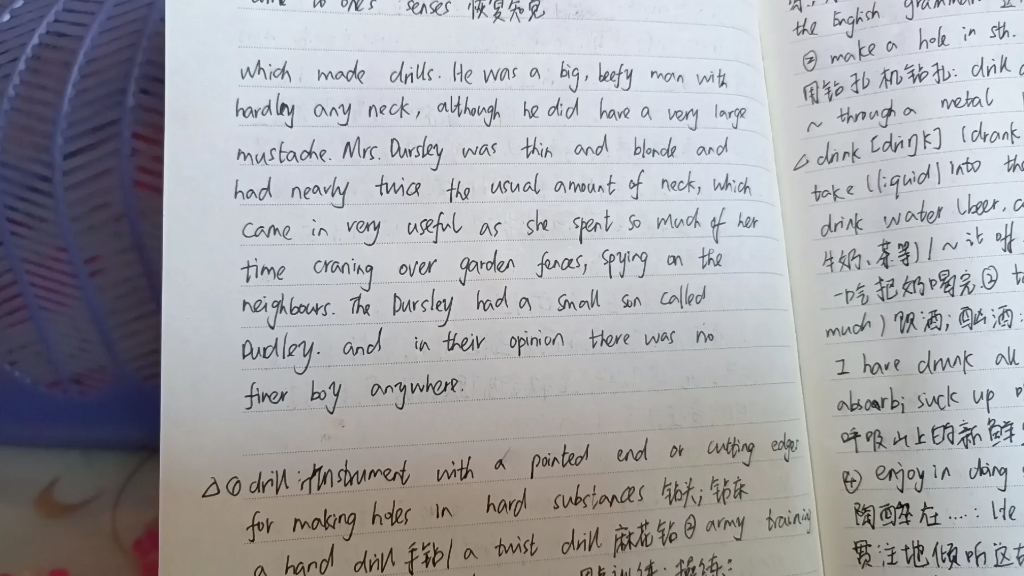 to one's senses 恢复知觉
which made drills. He was a big, beefy man with
hardley any neck, although he did have a very large
mustache. Mrs. Dursley was thin and blonde and
had nearly twice the usual amount of neck, which
came in very useful as she spent so much of her
time craning over garden fences, spying on the
neighbours. The Dursley had a small son called
Dudley. and in their opinion there was no
finer boy anywhere.
△① drill: instrument with a pointed end or cutting edges
for making holes in hard substances 钻头; 钻床
a hand drill 手钻/ a twist drill 麻花钻 ② army training
the English
② make a hole in sth.
用钻孔机钻孔: drill
~ through a metal
△ drink [driŋk] (drank
take (liquid) into the
drink water (beer,
牛奶、茶等)/ ~ it
一吃把奶喝完 ③
much) 饮酒; 酗酒:
I have drunk all
absorb; suck up
呼吸山上的新鲜
④ enjoy in doing
陶醉在....: He
贯注地倾听这